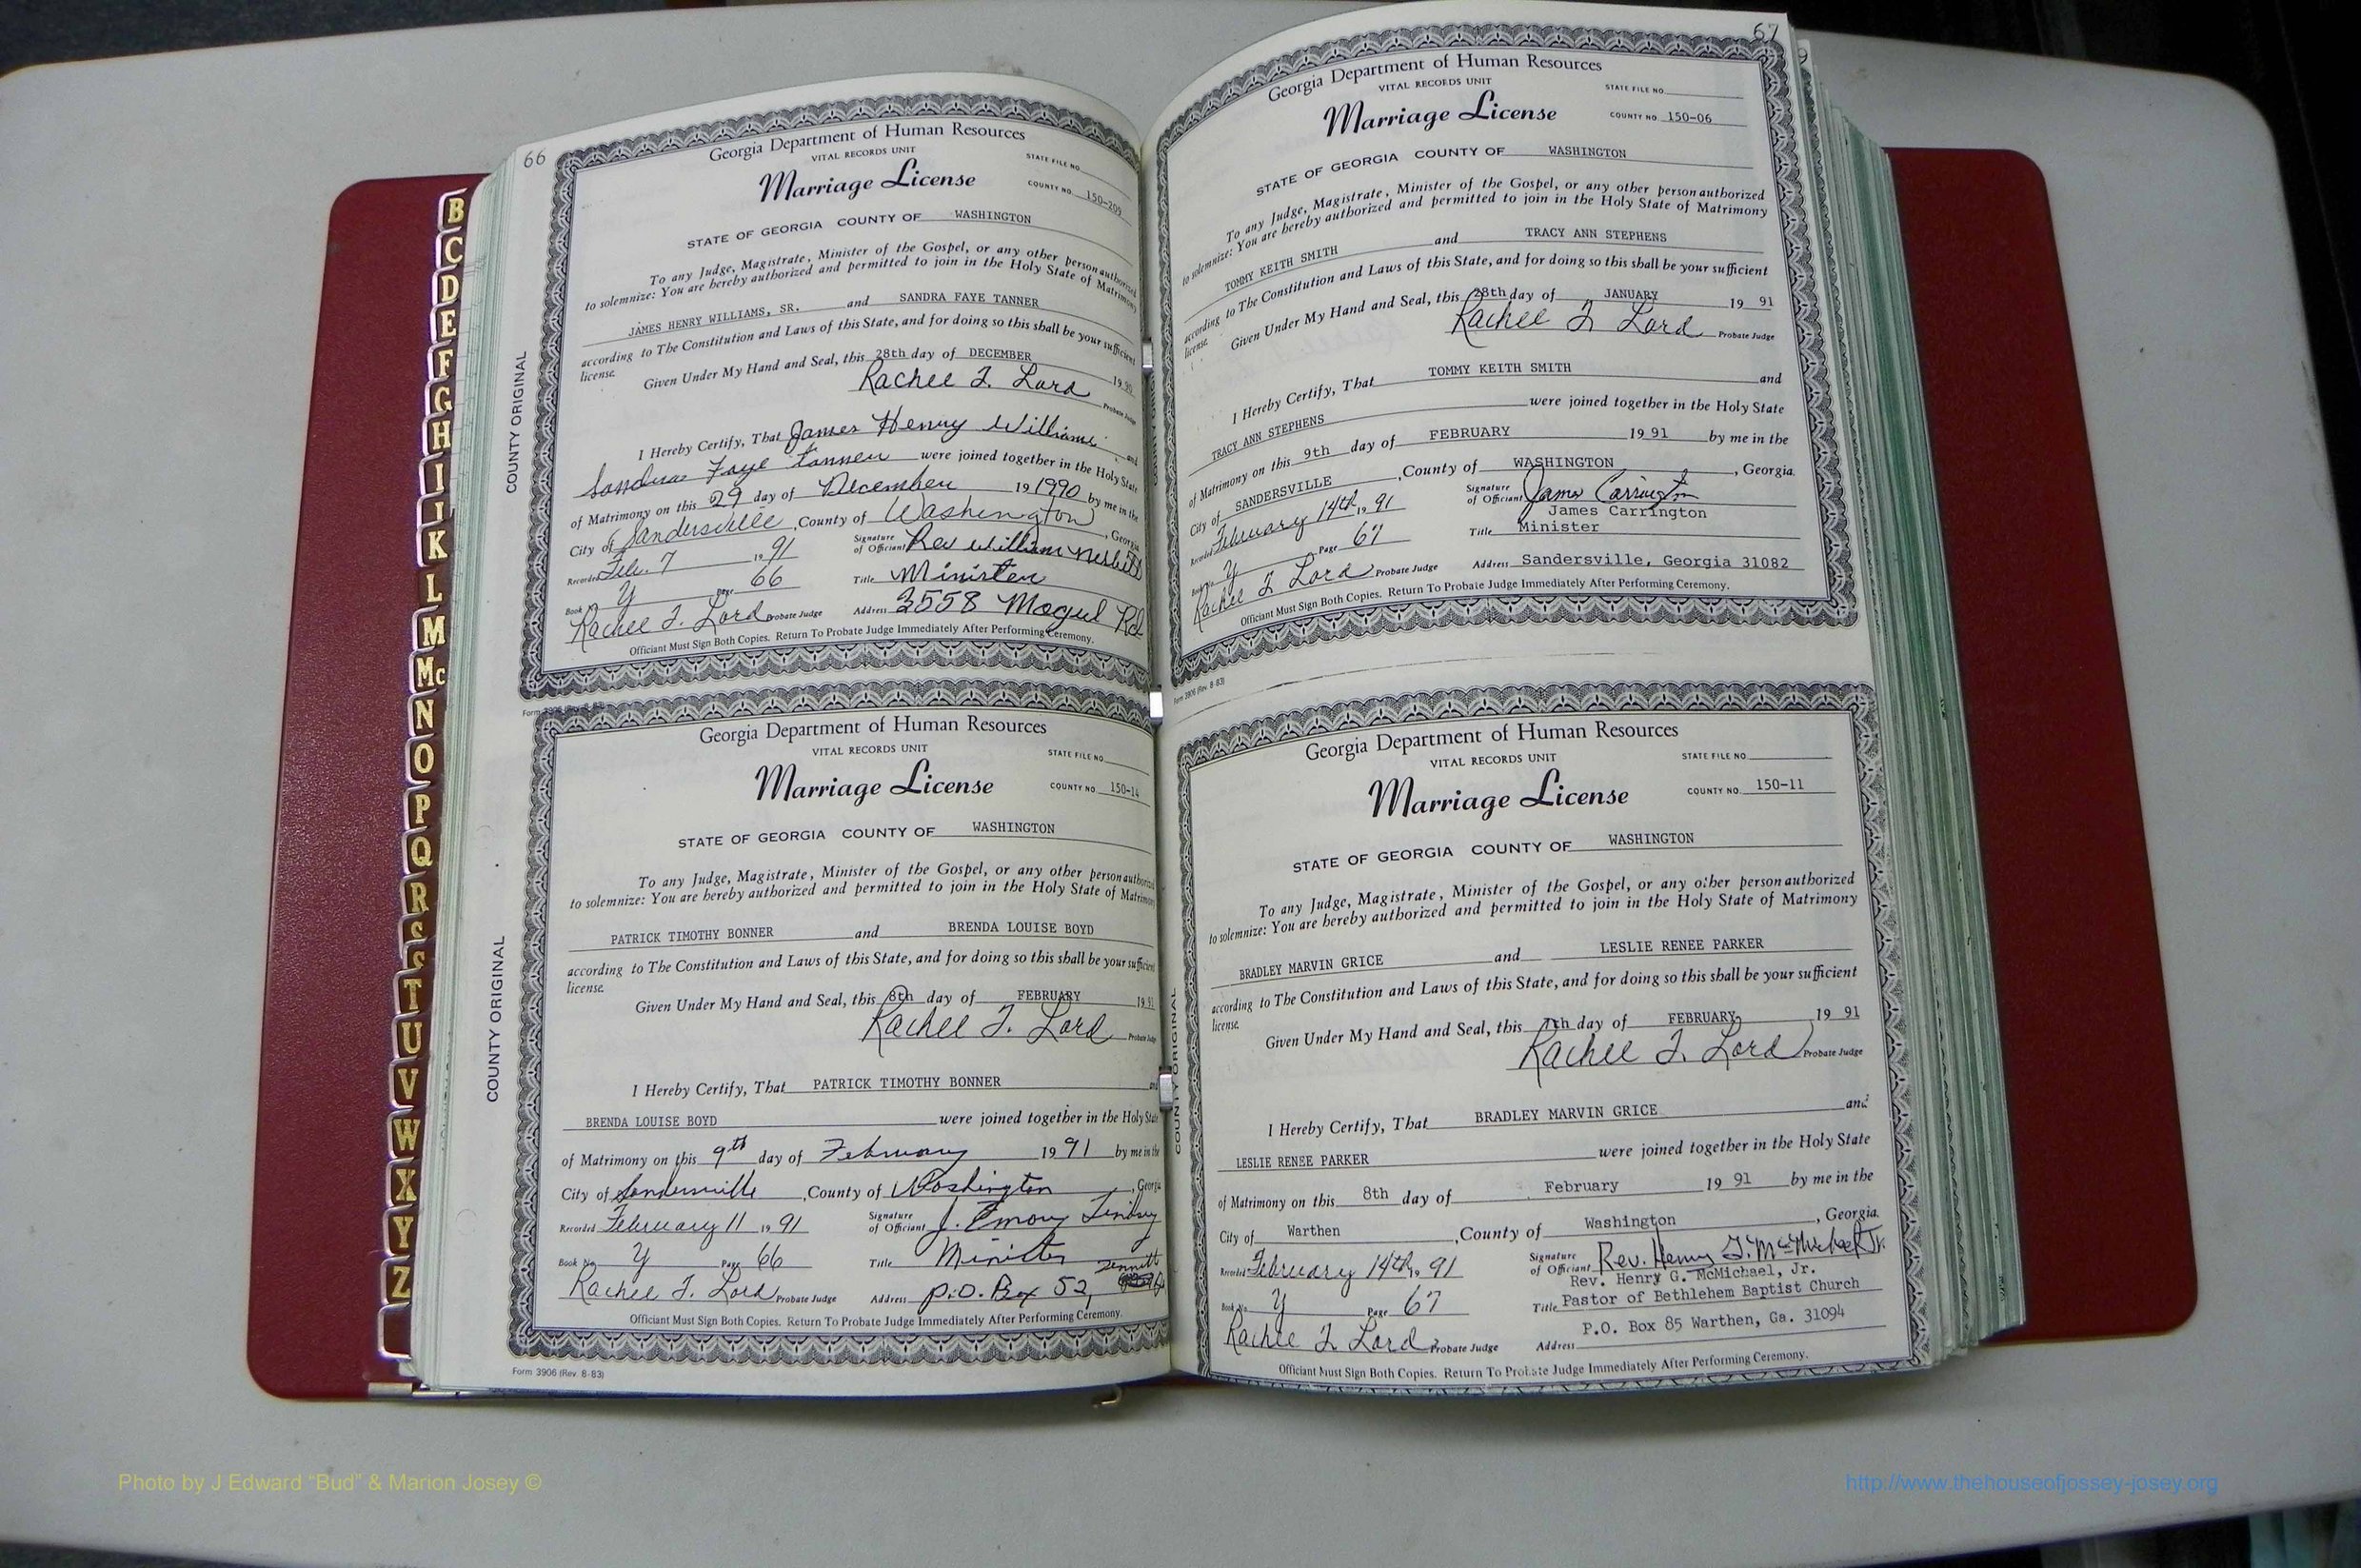 66
Georgia Department of Human Resources
VITAL RECORDS UNIT
STATE FILE NO.
Marriage License
COUNTY NO. 150-209
STATE OF GEORGIA COUNTY OF WASHINGTON
To any Judge, Magistrate, Minister of the Gospel, or any other person authorized
to solemnize: You are hereby authorized and permitted to join in the Holy State of Matrimony
JAMES HENRY WILLIAMS, SR. and SANDRA FAYE TANNER
according to The Constitution and Laws of this State, and for doing so this shall be your sufficient
license.
Given Under My Hand and Seal, this 28th day of DECEMBER 19 90
Rachel T. Lord Probate Judge
I Hereby Certify, That James Henry Williams and
Sandra Faye Tanner were joined together in the Holy State
of Matrimony on this 29 day of December 19 1990 by me in the
City of Sandersville, County of Washington, Georgia
Recorded Feb. 7 19 91
Signature of Officiant Rev William Nesbitt
Book No. Y Page 66
Title Minister
Rachel T. Lord Probate Judge
Address 3558 Mogul Rd
Officiant Must Sign Both Copies. Return To Probate Judge Immediately After Performing Ceremony.
COUNTY ORIGINAL
Form 3906 (Rev. 8-83)
Georgia Department of Human Resources
VITAL RECORDS UNIT
STATE FILE NO.
Marriage License
COUNTY NO. 150-14
STATE OF GEORGIA COUNTY OF WASHINGTON
To any Judge, Magistrate, Minister of the Gospel, or any other person authorized
to solemnize: You are hereby authorized and permitted to join in the Holy State of Matrimony
PATRICK TIMOTHY BONNER and BRENDA LOUISE BOYD
according to The Constitution and Laws of this State, and for doing so this shall be your sufficient
license.
Given Under My Hand and Seal, this 8th day of FEBRUARY 19 91
Rachel T. Lord Probate Judge
I Hereby Certify, That PATRICK TIMOTHY BONNER and
BRENDA LOUISE BOYD were joined together in the Holy State
of Matrimony on this 9th day of February 19 91 by me in the
City of Sandersville, County of Washington, Georgia
Recorded February 11 19 91
Signature of Officiant J. Emory Lindsey
Book No. Y Page 66
Title Minister
Rachel T. Lord Probate Judge
Address P.O. Box 52, Tennille
Officiant Must Sign Both Copies. Return To Probate Judge Immediately After Performing Ceremony.
COUNTY ORIGINAL
Form 3906 (Rev. 8-83)
67
Georgia Department of Human Resources
VITAL RECORDS UNIT
STATE FILE NO.
Marriage License
COUNTY NO. 150-06
STATE OF GEORGIA COUNTY OF WASHINGTON
To any Judge, Magistrate, Minister of the Gospel, or any other person authorized
to solemnize: You are hereby authorized and permitted to join in the Holy State of Matrimony
TOMMY KEITH SMITH and TRACY ANN STEPHENS
according to The Constitution and Laws of this State, and for doing so this shall be your sufficient
license.
Given Under My Hand and Seal, this 28th day of JANUARY 19 91
Rachel T. Lord Probate Judge
I Hereby Certify, That TOMMY KEITH SMITH and
TRACY ANN STEPHENS were joined together in the Holy State
of Matrimony on this 9th day of FEBRUARY 19 91 by me in the
City of SANDERSVILLE, County of WASHINGTON, Georgia.
Recorded February 14th, 19 91
Signature of Officiant James Carrington
James Carrington
Book No. Y Page 67
Title Minister
Rachel T. Lord Probate Judge
Address Sandersville, Georgia 31082
Officiant Must Sign Both Copies. Return To Probate Judge Immediately After Performing Ceremony.
Form 3906 (Rev. 8-83)
Georgia Department of Human Resources
VITAL RECORDS UNIT
STATE FILE NO.
Marriage License
COUNTY NO. 150-11
STATE OF GEORGIA COUNTY OF WASHINGTON
To any Judge, Magistrate, Minister of the Gospel, or any other person authorized
to solemnize: You are hereby authorized and permitted to join in the Holy State of Matrimony
BRADLEY MARVIN GRICE and LESLIE RENEE PARKER
according to The Constitution and Laws of this State, and for doing so this shall be your sufficient
license.
Given Under My Hand and Seal, this 7th day of FEBRUARY 19 91
Rachel T. Lord Probate Judge
I Hereby Certify, That BRADLEY MARVIN GRICE and
LESLIE RENEE PARKER were joined together in the Holy State
of Matrimony on this 8th day of February 19 91 by me in the
City of Warthen, County of Washington, Georgia.
Recorded February 14th, 19 91
Signature of Officiant Rev. Henry G. McMichael Jr.
Rev. Henry G. McMichael, Jr.
Book No. Y Page 67
Title Pastor of Bethlehem Baptist Church
Rachel T. Lord Probate Judge
P.O. Box 85 Warthen, Ga. 31094
Address
Officiant Must Sign Both Copies. Return To Probate Judge Immediately After Performing Ceremony.
COUNTY ORIGINAL
B
C
D
E
F
G
H
I
J
K
L
M
Mc
N
O
P
Q
R
S
T
U
V
W
X
Y
Z
Photo by J Edward “Bud” & Marion Josey ©
http://www.thehouseofjossey-josey.org